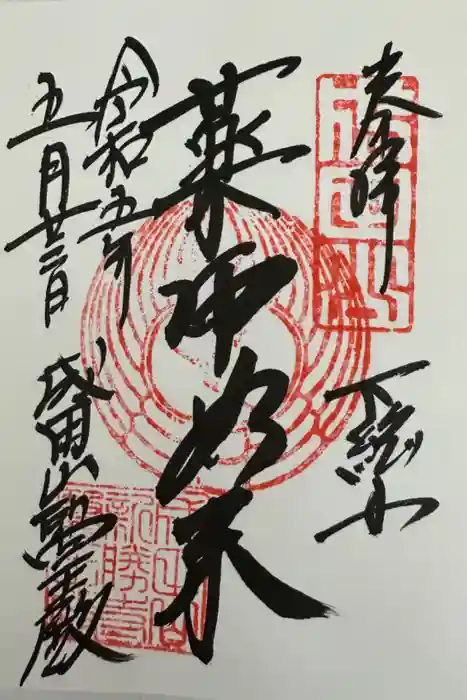 奉拝
下総
薬師如来
令和五年
五月廿二日
成田山醫王殿
成田山
新勝寺